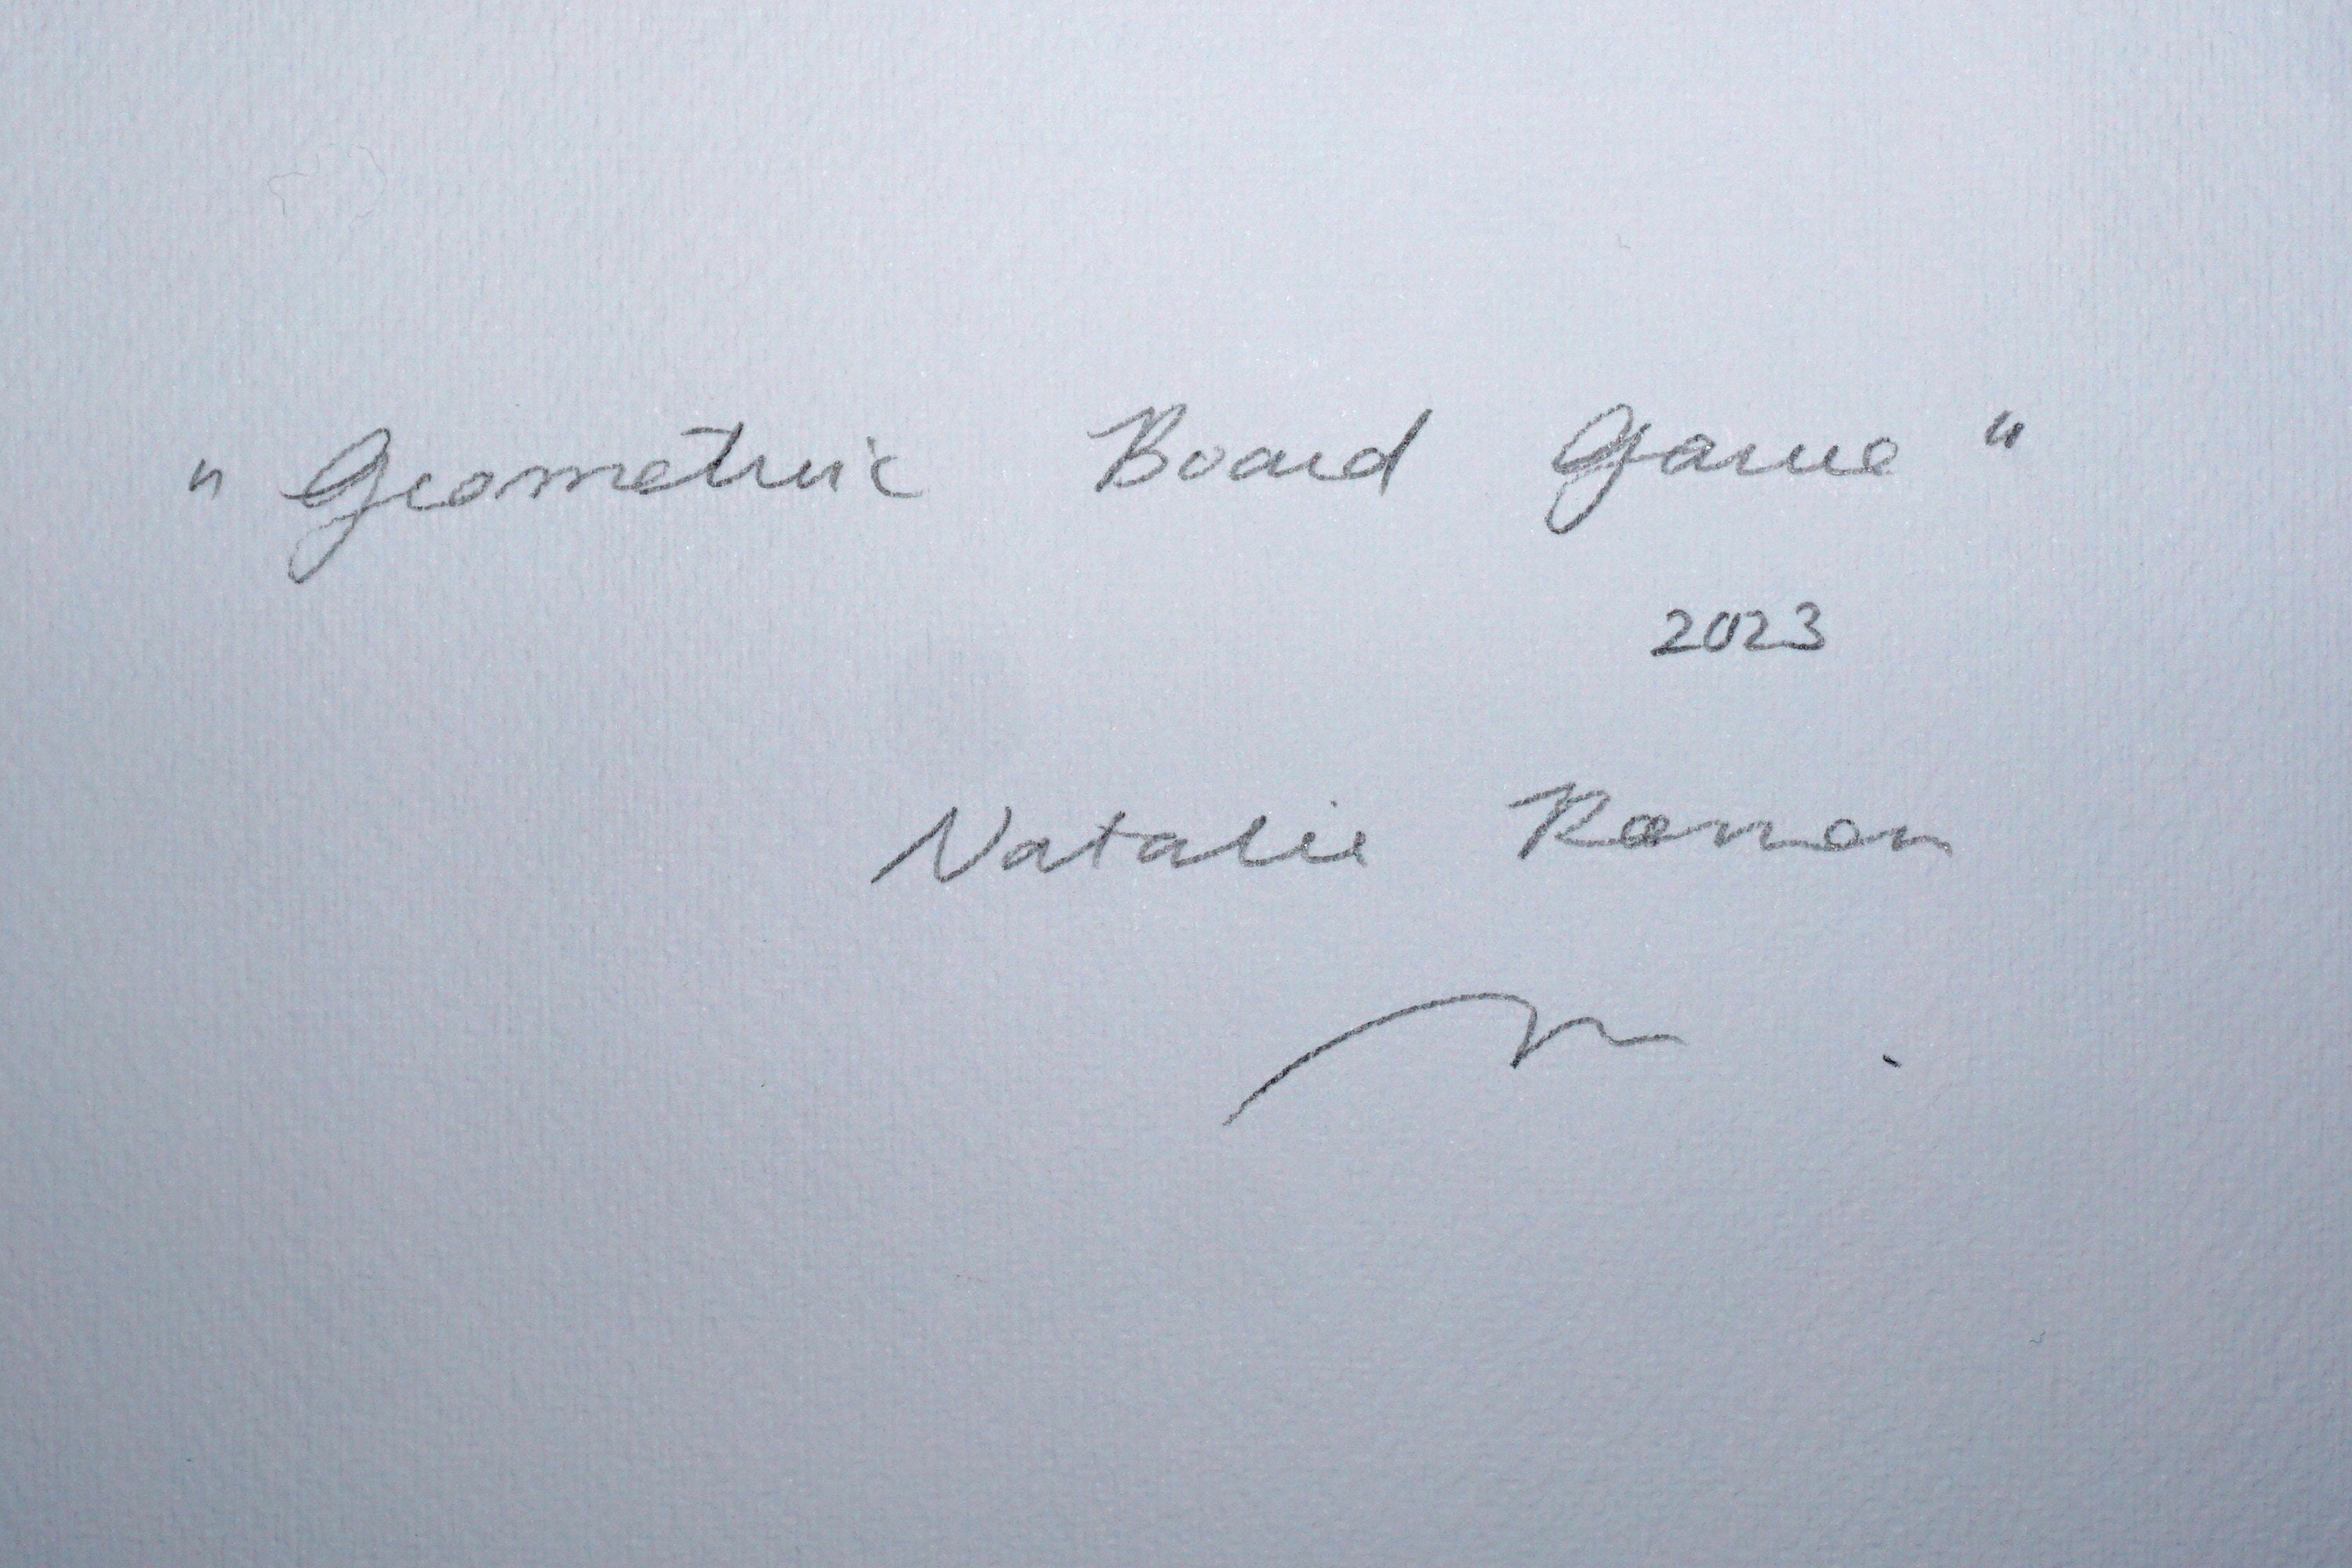 "Geometric Board Game"
2023
Natalie